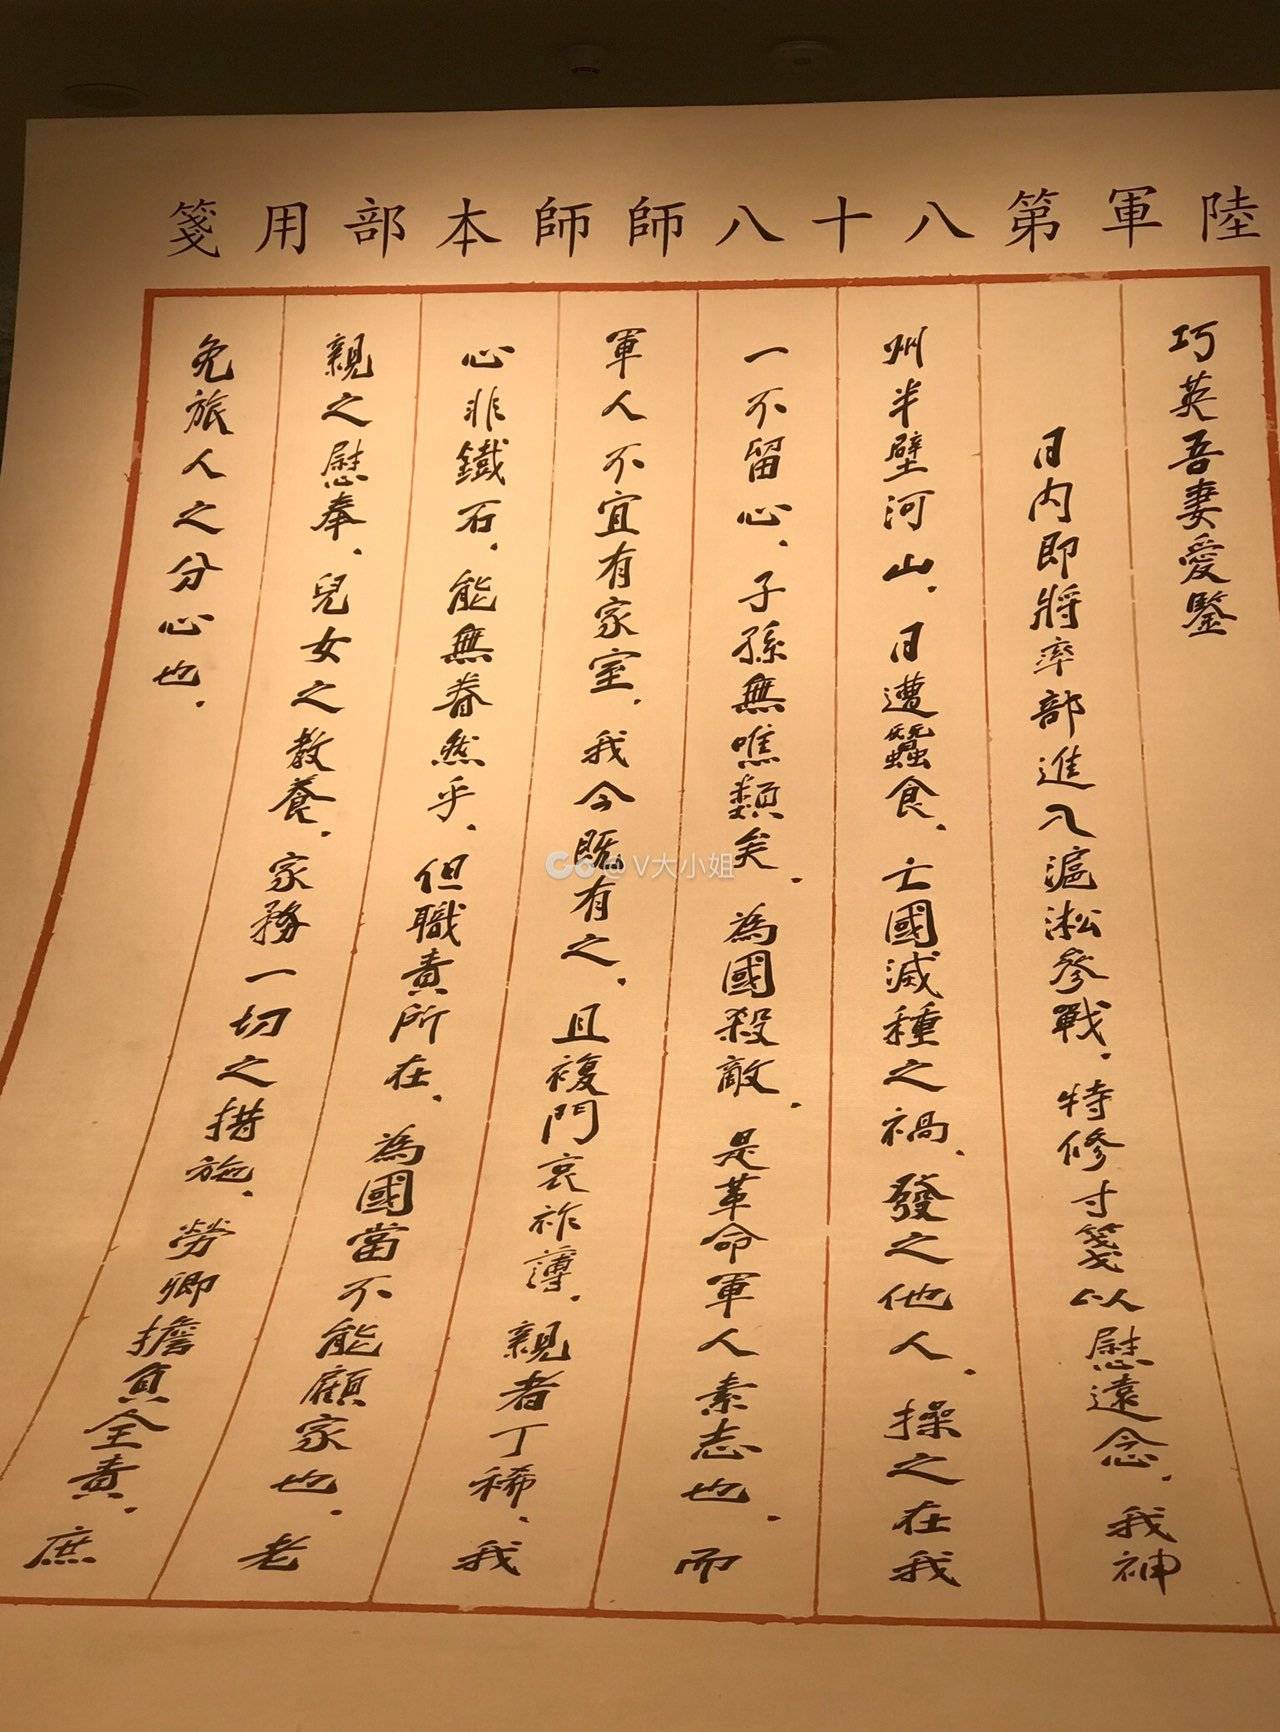 陸軍第八十八師師本部用箋
巧英吾妻愛鑒
日內即將率部進入滬淞參戰．特修寸箋以慰遠念．我神
州半壁河山．日遭蠶食．亡國滅種之禍．發之他人．操之在我
一不留心．子孫無噍類矣．為國殺敵．是革命軍人素志也．而
軍人不宜有家室．我今既有之．且複門哀祚薄．親者丁稀．我
心非鐵石．能無眷然乎．但職責所在．為國當不能顧家也．老
親之慰奉．兒女之教養．家務一切之措施．勞卿擔負全責．庶
免旅人之分心也．
@V大小姐